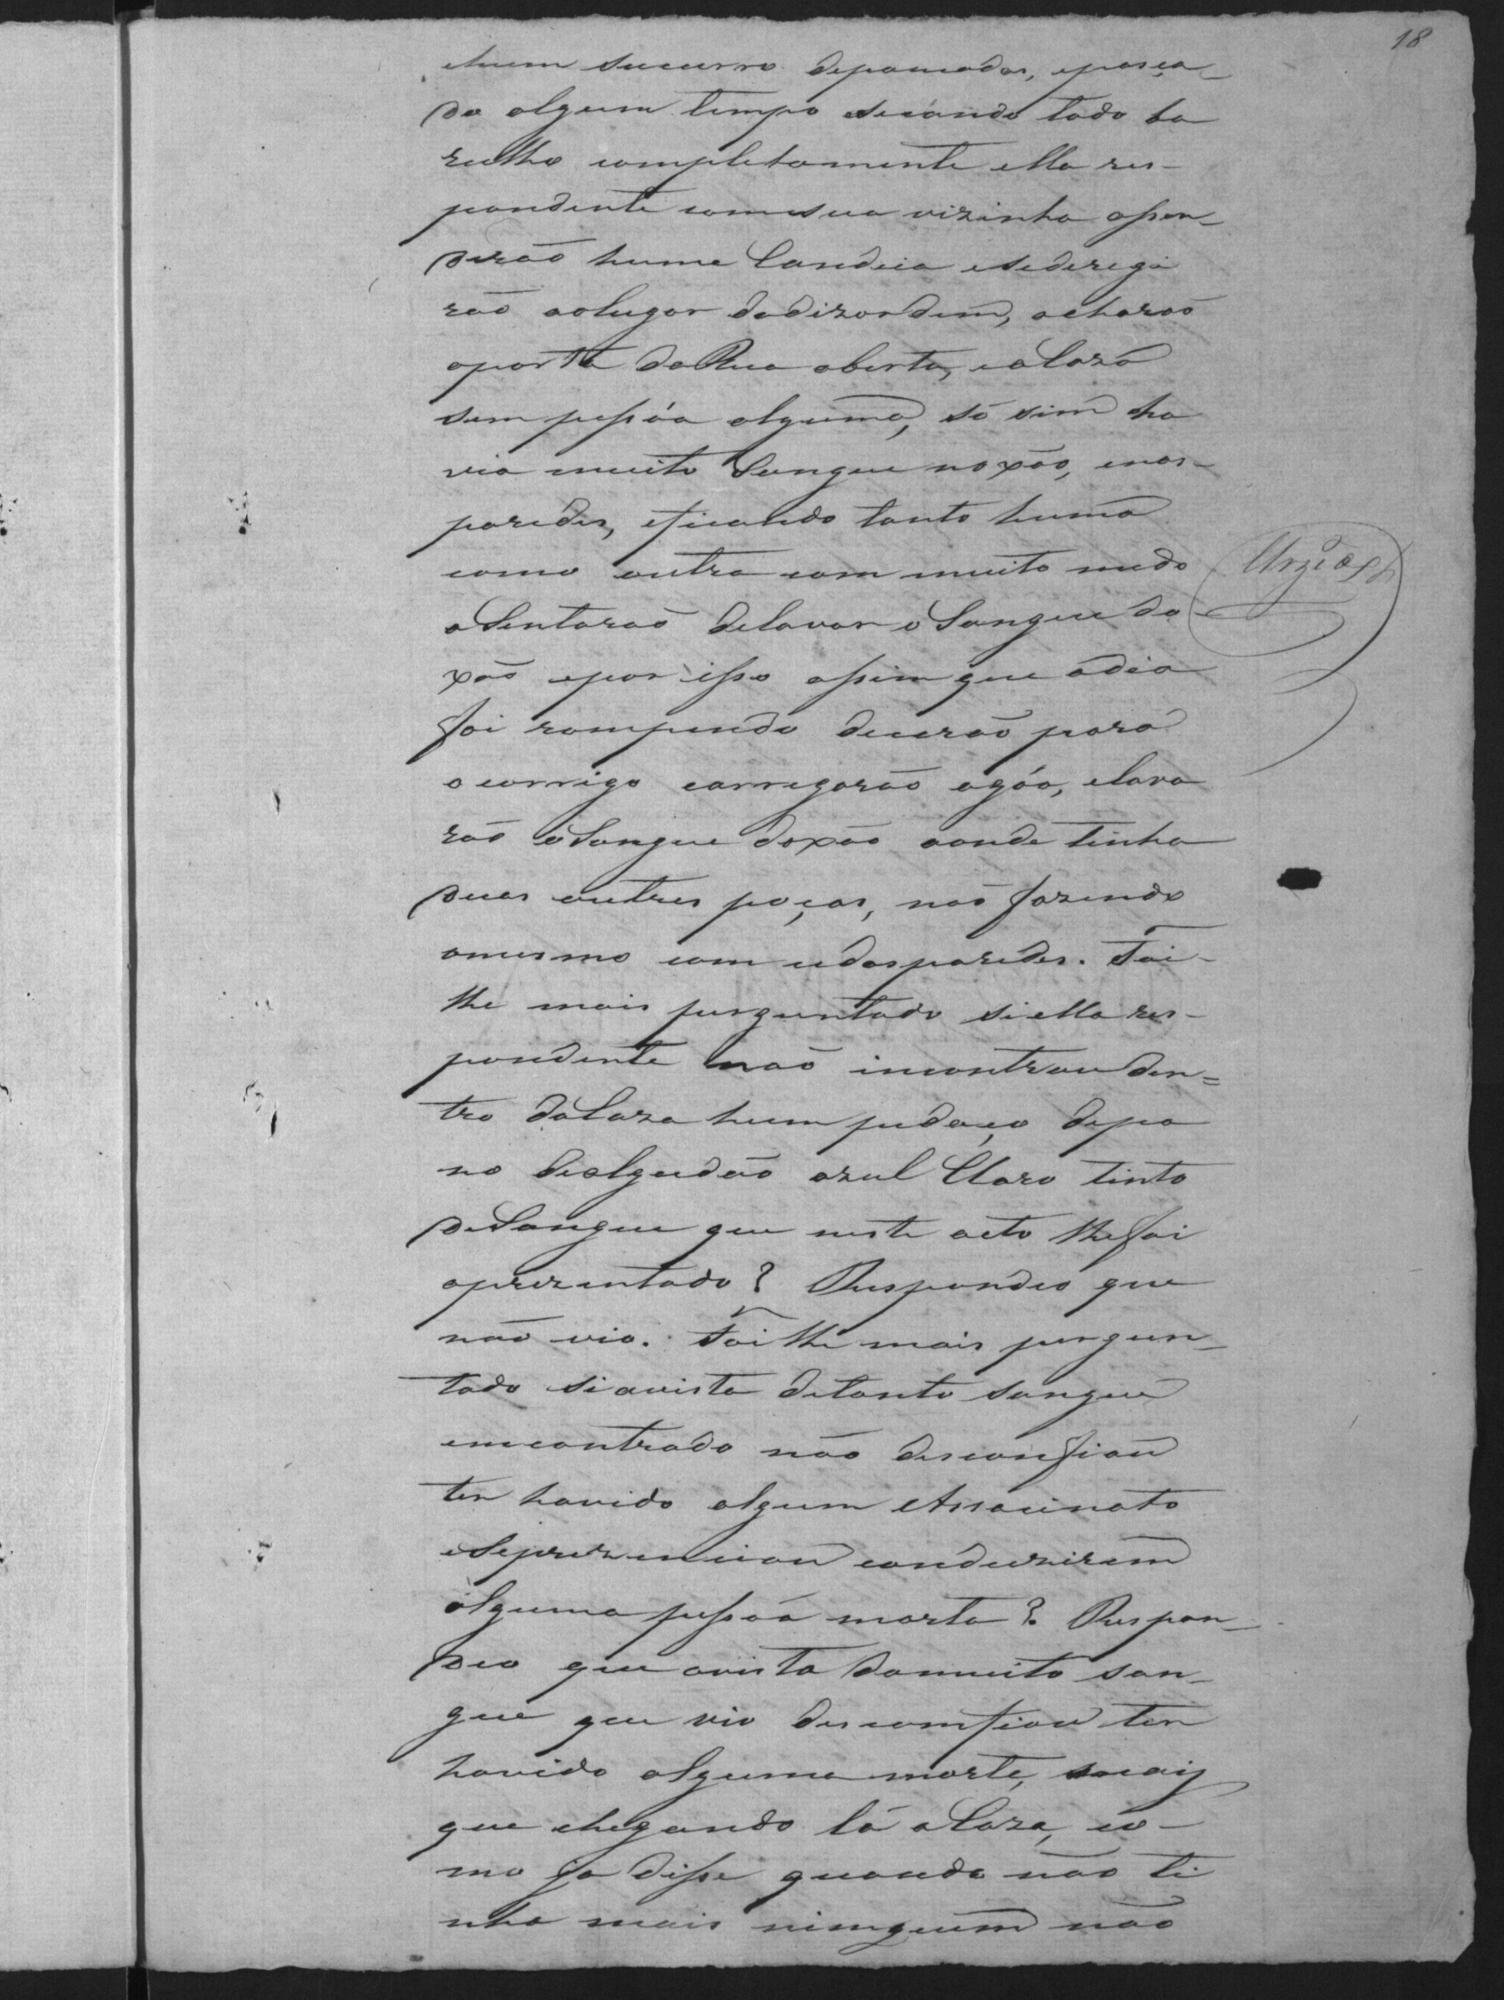 18
e hum sucurro depancadas, epassa-
do algum tempo secando todo ba
rulho completamente ella res-
pondente comsua vizinha assen-
derão huma Candeia esederegi
rão aolugar dadizordem, acharão
aporta daRua aberta, eaCaza
sem pessôa alguma, só sim ha
via muito Sangue noxão, enas-
paredes, eficando tanto huma
como outra com muito medo
asentarão delavar o Sangue do
xão epor isso assim que odia
foi rompendo decerão para
o corrigo carregarão agôa, elava
rão oSangue doxão aonde tinha
duas outres poças, não fazendo
omesmo com odasparedes. Foi-
lhe mais perguntado siella res-
pondente não incontrou den=
tro daCaza hum pedaço depa
no dealgudão azul Claro tinto
deSangue que neste acto lhefoi
aprezentado? Respondeo que
não vio. Foilhe mais pergun-
tado siavista detanto sangue
emcontrado não desconfiou
ter havido algum Assacinato
eseprezenciou conduzirem
alguma pessôa morta? Respon-
deo que avista domuito san-
gue que vio descomfiou ter
havido alguma morte, mais
que chegando lá aCaza, co-
mo ja disse quando não ti
nha mais nimguem não